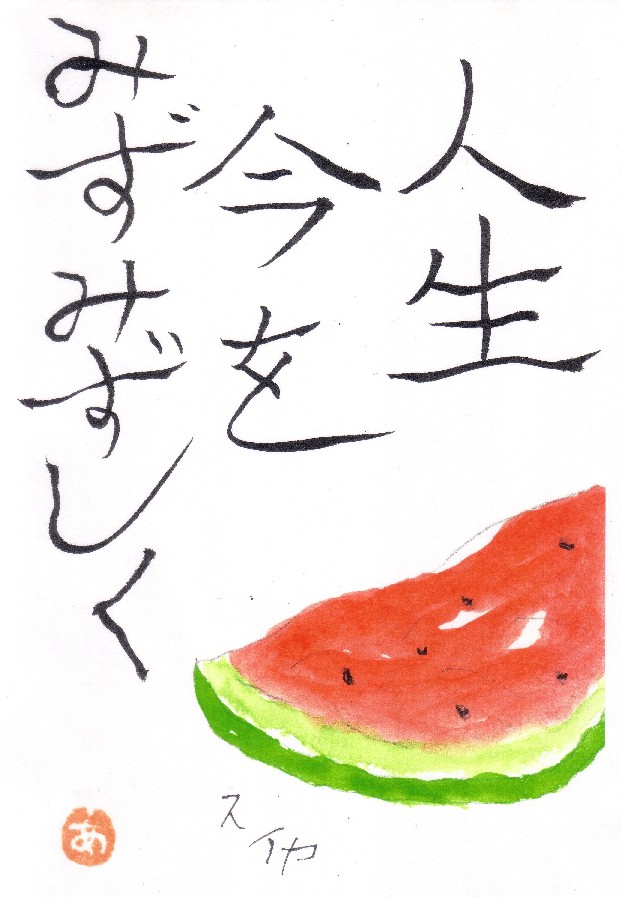 人生
今を
みずみずしく
スイヤ
あ